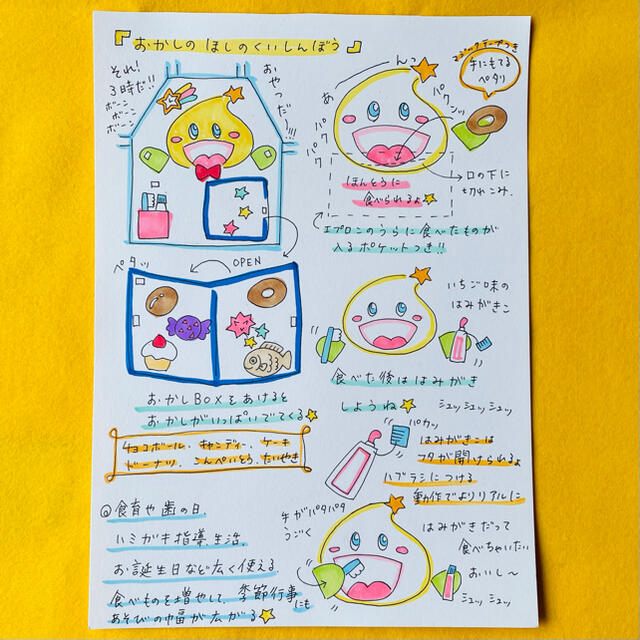 『おかしのほしのくいしんぼう』
それ!
3時だ!!
ボーン
ボーン
ボーン
おやつだー!!!
マジックテープつき
手にもてる
ペタリ
あ
んっ
パクッ
パク
パク
パク
口の下に
切れこみ.
ほんとうに
食べられるよ
エプロンのうらに食べたものが
入るポケットつき!!
ペタッ
OPEN
おかしBOXをあけると
おかしがいっぱいでてくる
チョコボール、キャンディー、ケーキ
ドーナツ、こんぺいとう、たいやき
いちご味の
はみがきこ
食べた後ははみがき
しようね
シュッ シュッ シュッ
パカッ
はみがきこは
フタが開けられるよ
ハブラシにつける
動作でよりリアルに
◎食育や歯の日.
ハミガキ指導、生活.
お誕生日など広く使える
食べものを増やして、季節行事にも
あそびの幅が広がる
手がパタパタ
うごく
はみがきだって
食べちゃいたい
おいし〜
シュッ シュッ